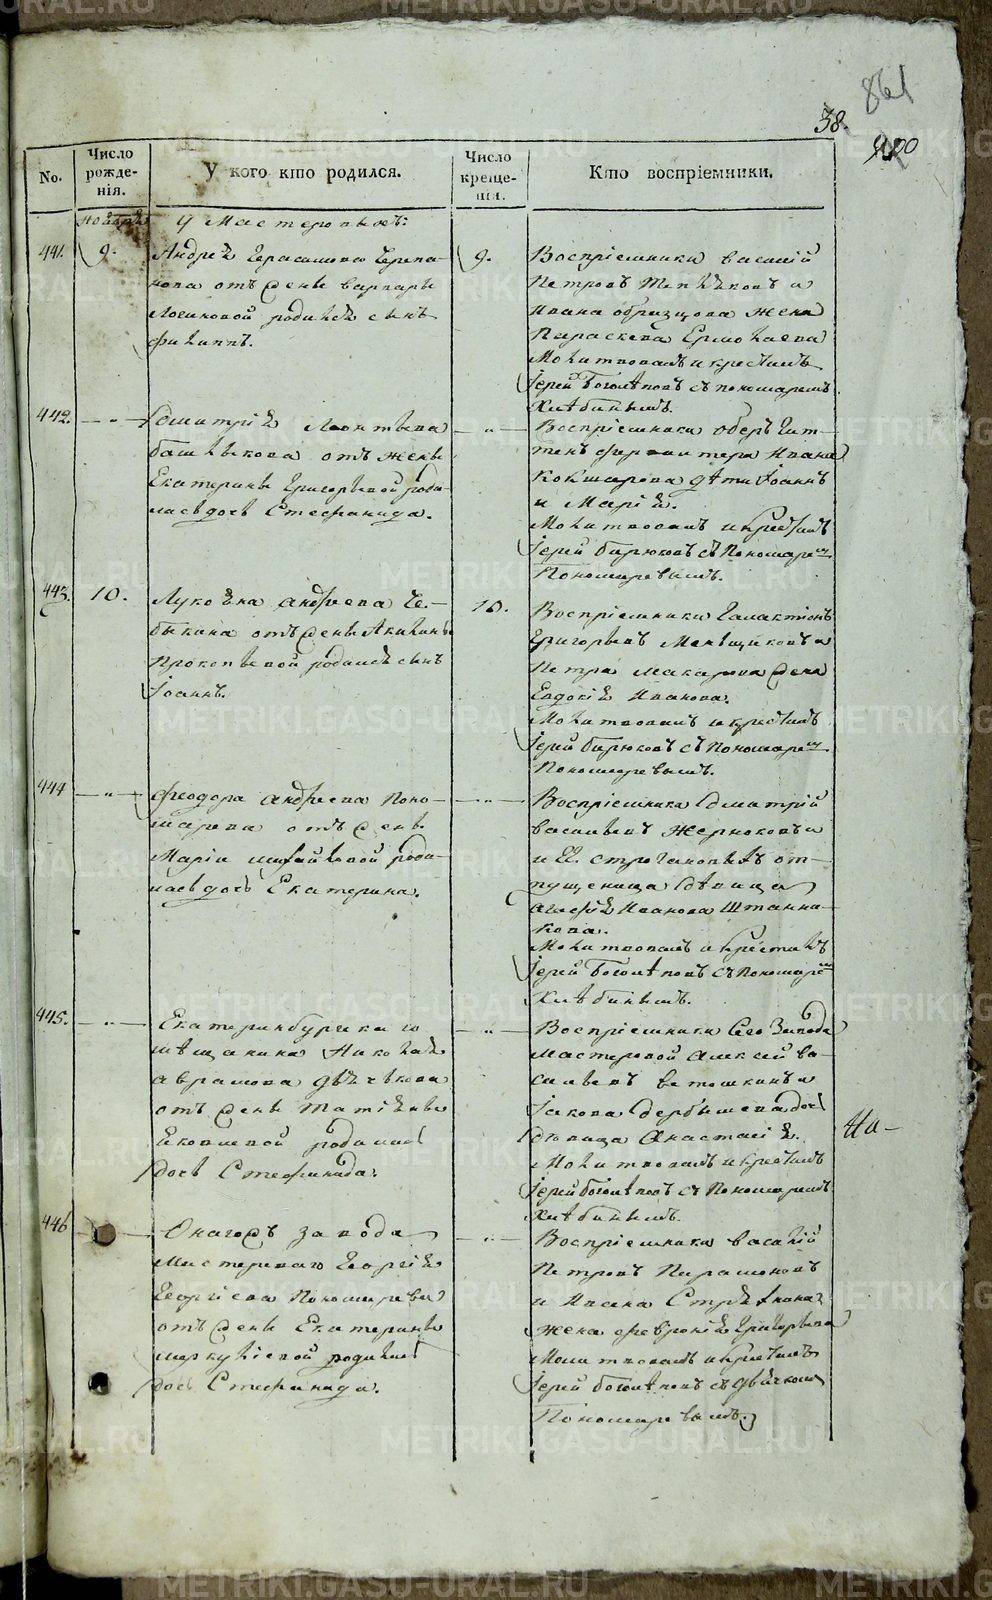 861
38.
900
No.
Число рожде-нія.
У кого кто родился.
Число креще-нія.
Кто воспріемники.
Ноября
У Мастеровыхъ:
441.
9.
Андрея Герасимова Черепа-
нова отъ жены Варвары
Логиновой родился сынъ
Филиппъ.
9.
Воспріемники Василій
Петровъ и
Ивана Образцова жена
Параскева Ермолаева
Молитвовалъ и крестилъ
Іерей Боголѣповъ съ пономаремъ
Хлѣбинымъ.
442.
- " -
Дмитрія Леонтьева
отъ жены
Екатерины Григорьевой роди-
лась дочь Стефанида.
- " -
Воспріемники оберъ гит-
тенъ фервалтера Ивана
Кокшарова дѣти Іоаннъ
и Марія.
Молитвовалъ и крестилъ
Іерей Бирюковъ съ Пономарем
Пономаревымъ.
443.
10.
Лукояна Андреева Че-
быкина отъ жены Акилины
Прокопьевой родился сынъ
Іоаннъ.
10.
Воспріемники Галактіонъ
Григорьевъ Меньщиковъ и
Петра Макарова жена
Евдокія Иванова.
Молитвовалъ и крестилъ
Іерей Бирюковъ съ Пономарем
Пономаревымъ.
444
- " -
Феодора Андреева Поно-
марева отъ жены
Маріи Михайловой роди-
лась дочь Екатерина.
- " -
Воспріемники Дмитрій
Васильевъ Жерноковъ и
и Г. Строгановыхъ от-
пущеница дѣвица
Агафія Иванова Штанни-
кова.
Молитвовалъ и крестилъ
Іерей Боголѣповъ съ Пономарем
Хлѣбинымъ.
445.
- " -
Екатеринбургскаго
мѣщанина Николая
Аврамова
отъ жены Татіяны
Яковлевой родилась
дочь Стефанида.
- " -
Воспріемники Сего Завода
мастеровой Алексей Ва-
сильевъ Ветошкинъ и
Іакова Дербышева дочь
дѣвица Анастасія.
Молитвовалъ и крестилъ
Іерей Боголѣповъ съ Пономаремъ
Хлѣбинымъ.
На-
446
Онагожъ завода
мастероваго Георгія
Георгіева Пономарева
отъ жены Екатерины
Меркуліевой родилась
дочь Стефанида.
- " -
Воспріемники Василій
Петровъ Парамоновъ
и Ивана
жена Февронія Григорьева
Молитвовалъ и крестилъ
Іерей Боголѣповъ съ дьячкомъ
Пономаревымъ.
METRIKI.GASO-URAL.RU